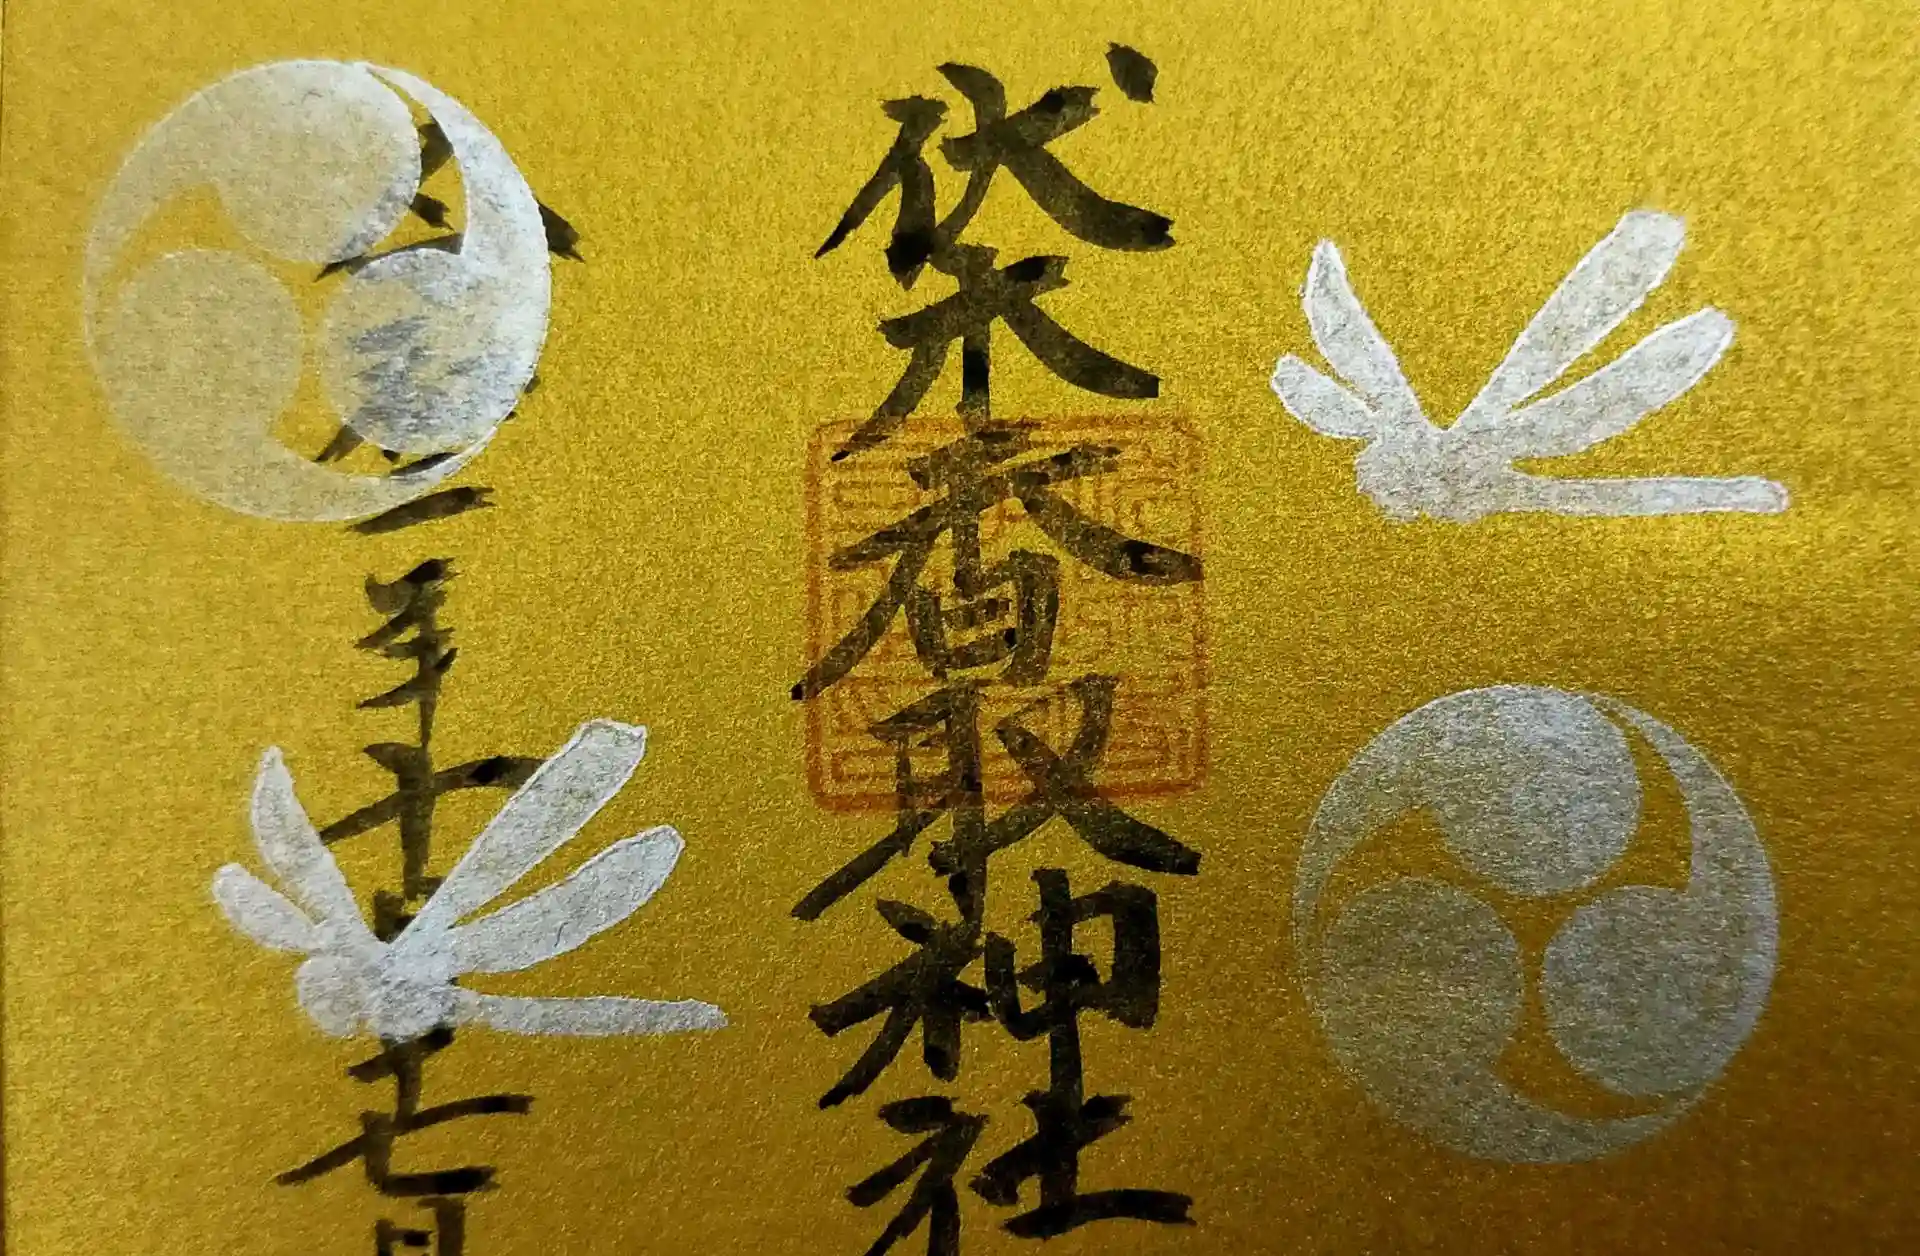 伏木香取神社
令和二年十月十七日